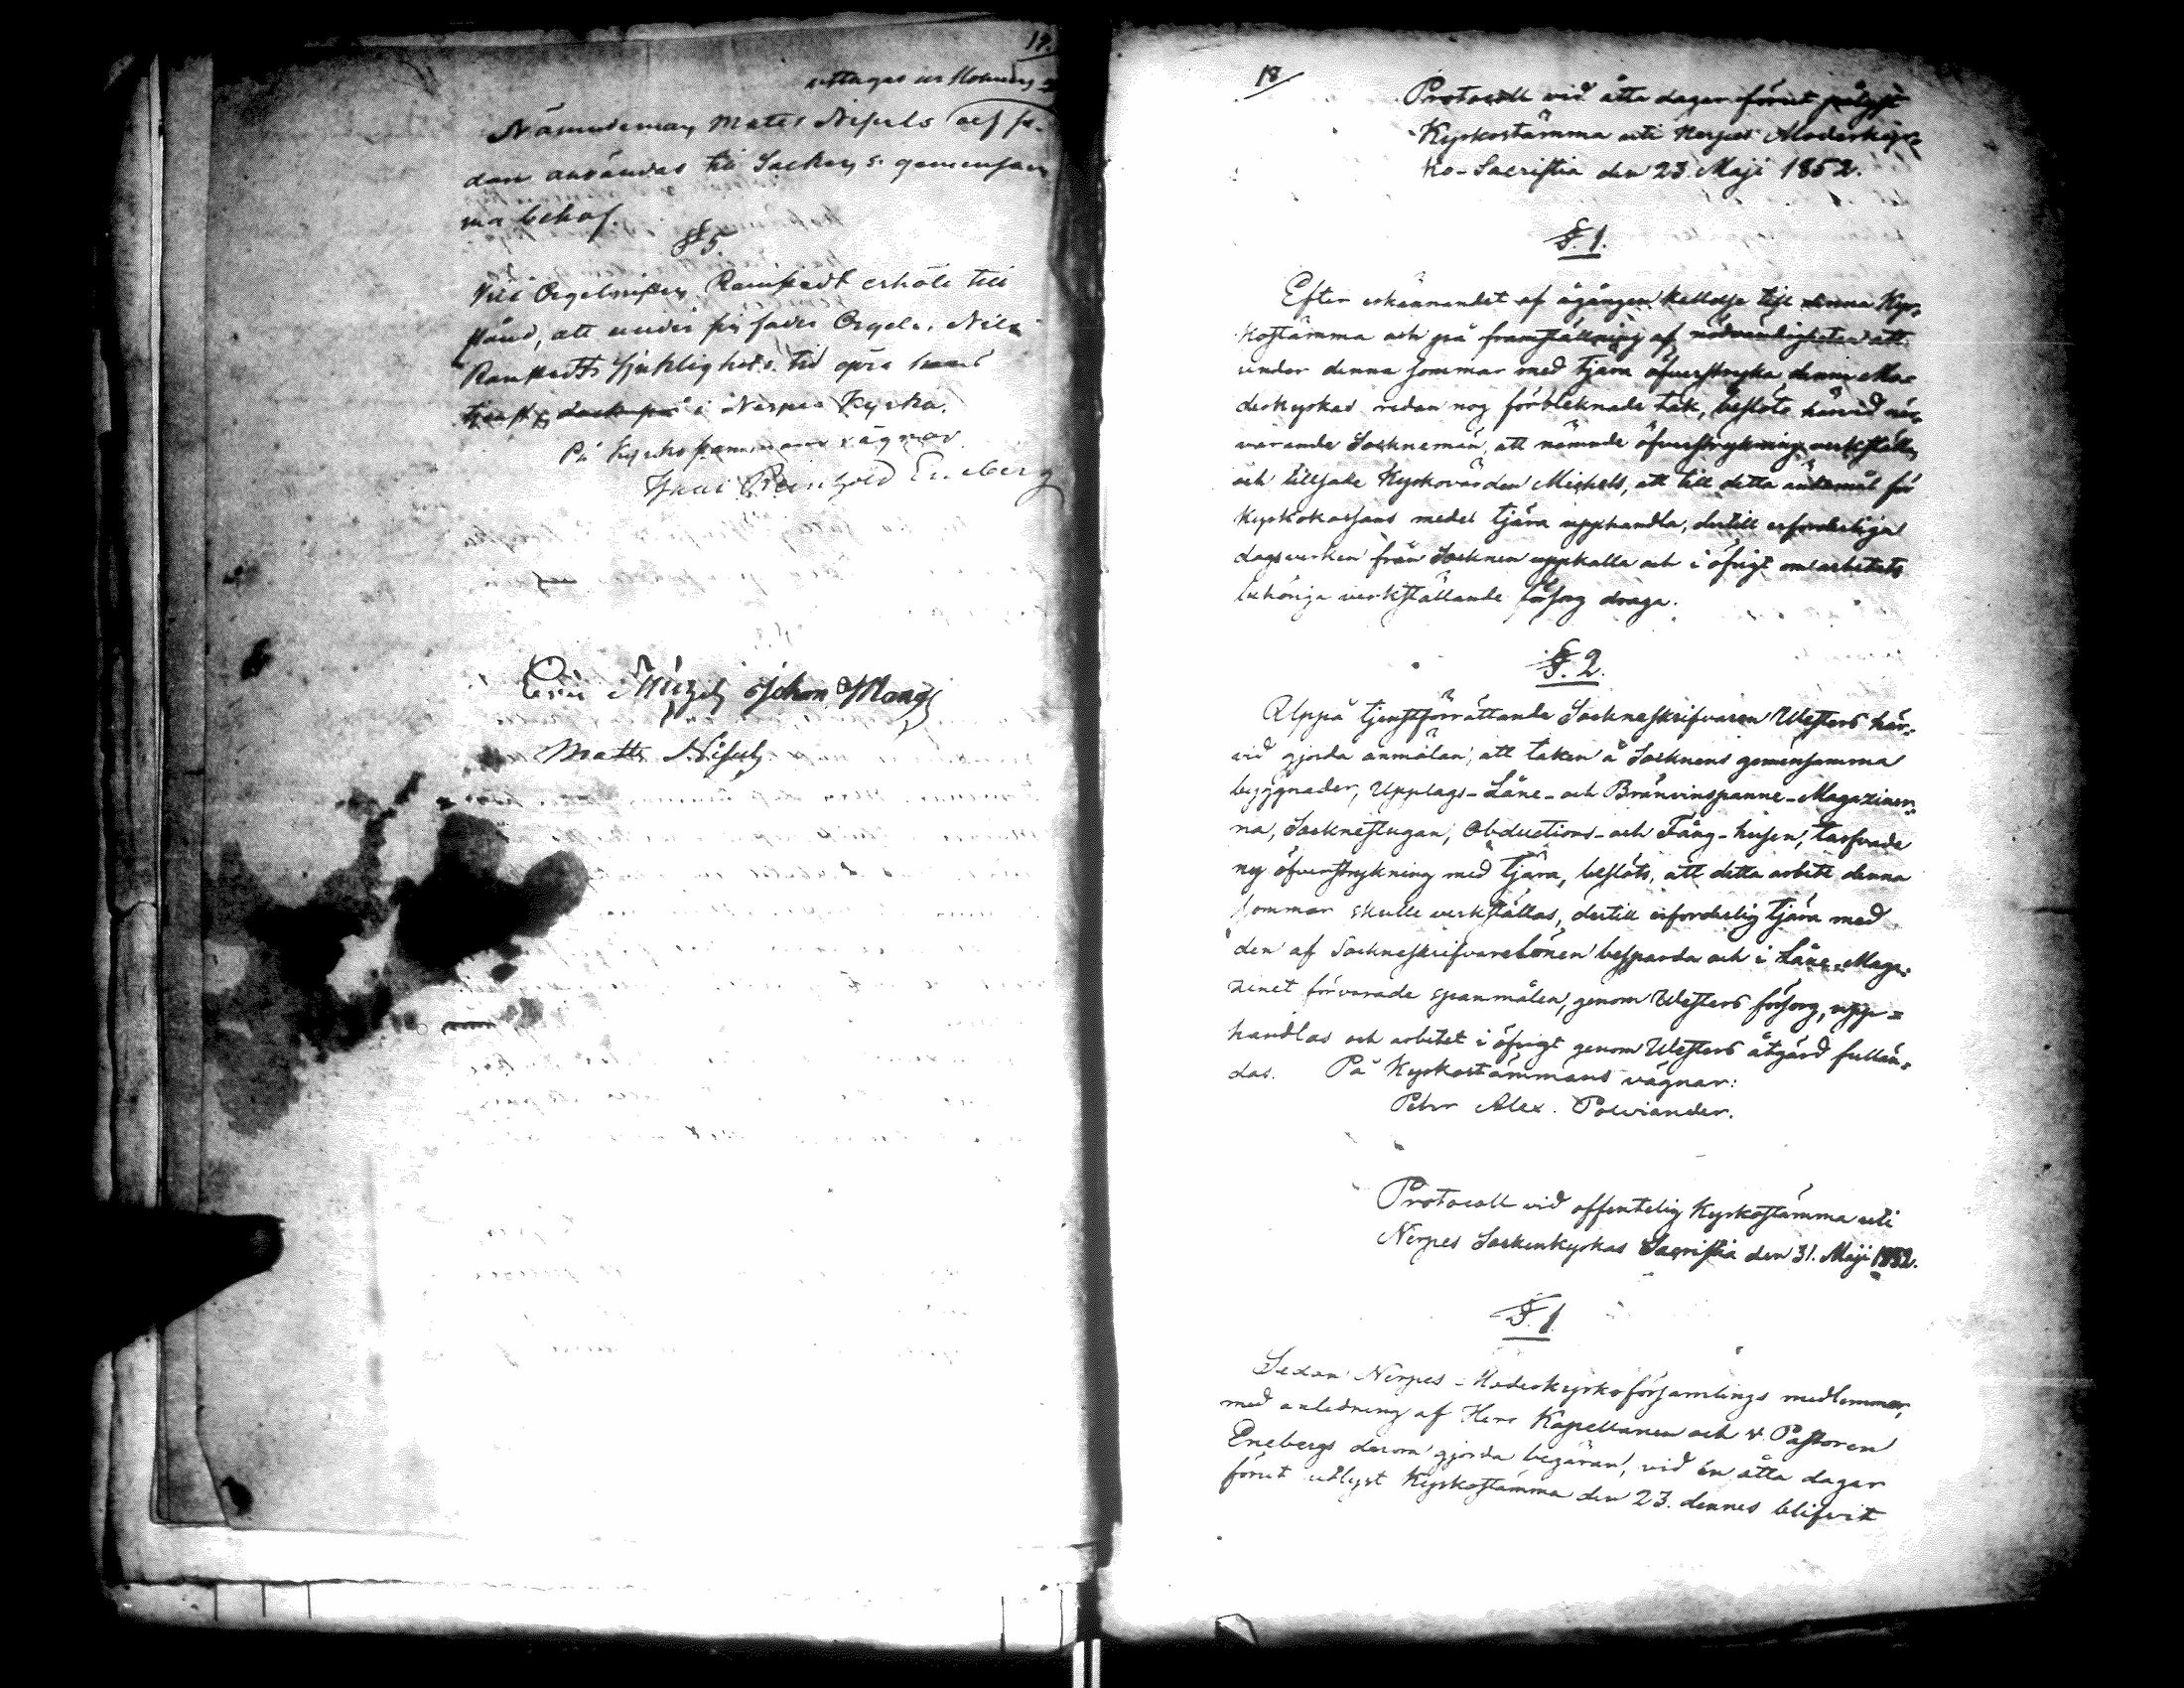 17.
uttages
Nämndeman Matts Nisuls och se-
dan användas till Socknens gemensam
ma behof.
§ 5.
Orgelnisten Ramstedt erhöll till
stånd, att under sin fader Orgeln. Nils
Ramstedts sjuklighets tid göra hans
tjenst i Nerpes Kyrka.
På Kyrkostämmans vägnar
Reinhold Eneberg
Johan Mang
Matts Nisuls
18
Protocoll vid åtta dagar förut pålyst
Kyrkostämma uti Nerpes Moderkyr=
ko-Sacristia den 23 Maji 1852.
§. 1.
Efter erkännandet af ågången kallelse till denna Kyr=
kostämma och på framställning af nödvändigheten att
under denna sommar med tjära öfverstryka denna Mo=
derkyrkas redan nog förbleknade tak, beslöto härvid när=
varande Socknemän, att nämnde öfverstrykning verkställa
och tillsade Kyrkovärden Michels, att till detta ändamål för
Kyrkokassans medel tjära upphandla, dertill erforderliga
dagsverken från Socknen uppkalla och i öfrigt om arbetets
behöriga verkställande försorg draga.
§. 2.
Uppå tjenstförrättande Sockneskrifvaren Westers här=
vid gjorda anmälan, att taken å Socknens gemensamma
byggnader, Upplags- Låne- och Bränvinspanne-Magaziner=
na, Socknestugan, Obductions- och Fång-husen, tarfvade
ny öfverstrykning med tjära, beslöts, att detta arbete denna
sommar skulle verkställas, dertill erforderlig tjära med
den af Sockneskrifvarelönen besparda och i Låne-Maga=
zinet förvarade spanmålen, genom Westers försorg, upp=
handlas och arbetet i öfrigt genom Westers åtgärd fullän=
das. På Kyrkostämmans vägnar:
Pehr Alex. Polviander.
Protocoll vid offentelig Kyrkostämma uti
Nerpes Sockenkyrkas Sacristia den 31. Maji 1852.
§. 1
Sedan Nerpes Moderkyrkoförsamlings medlemmar,
med anledning af Herr Kapellanen och v. Pastoren
Enebergs derom gjorda begäran, vid en åtta dagar
förut utlyst Kyrkostämma den 23. dennes blifvit